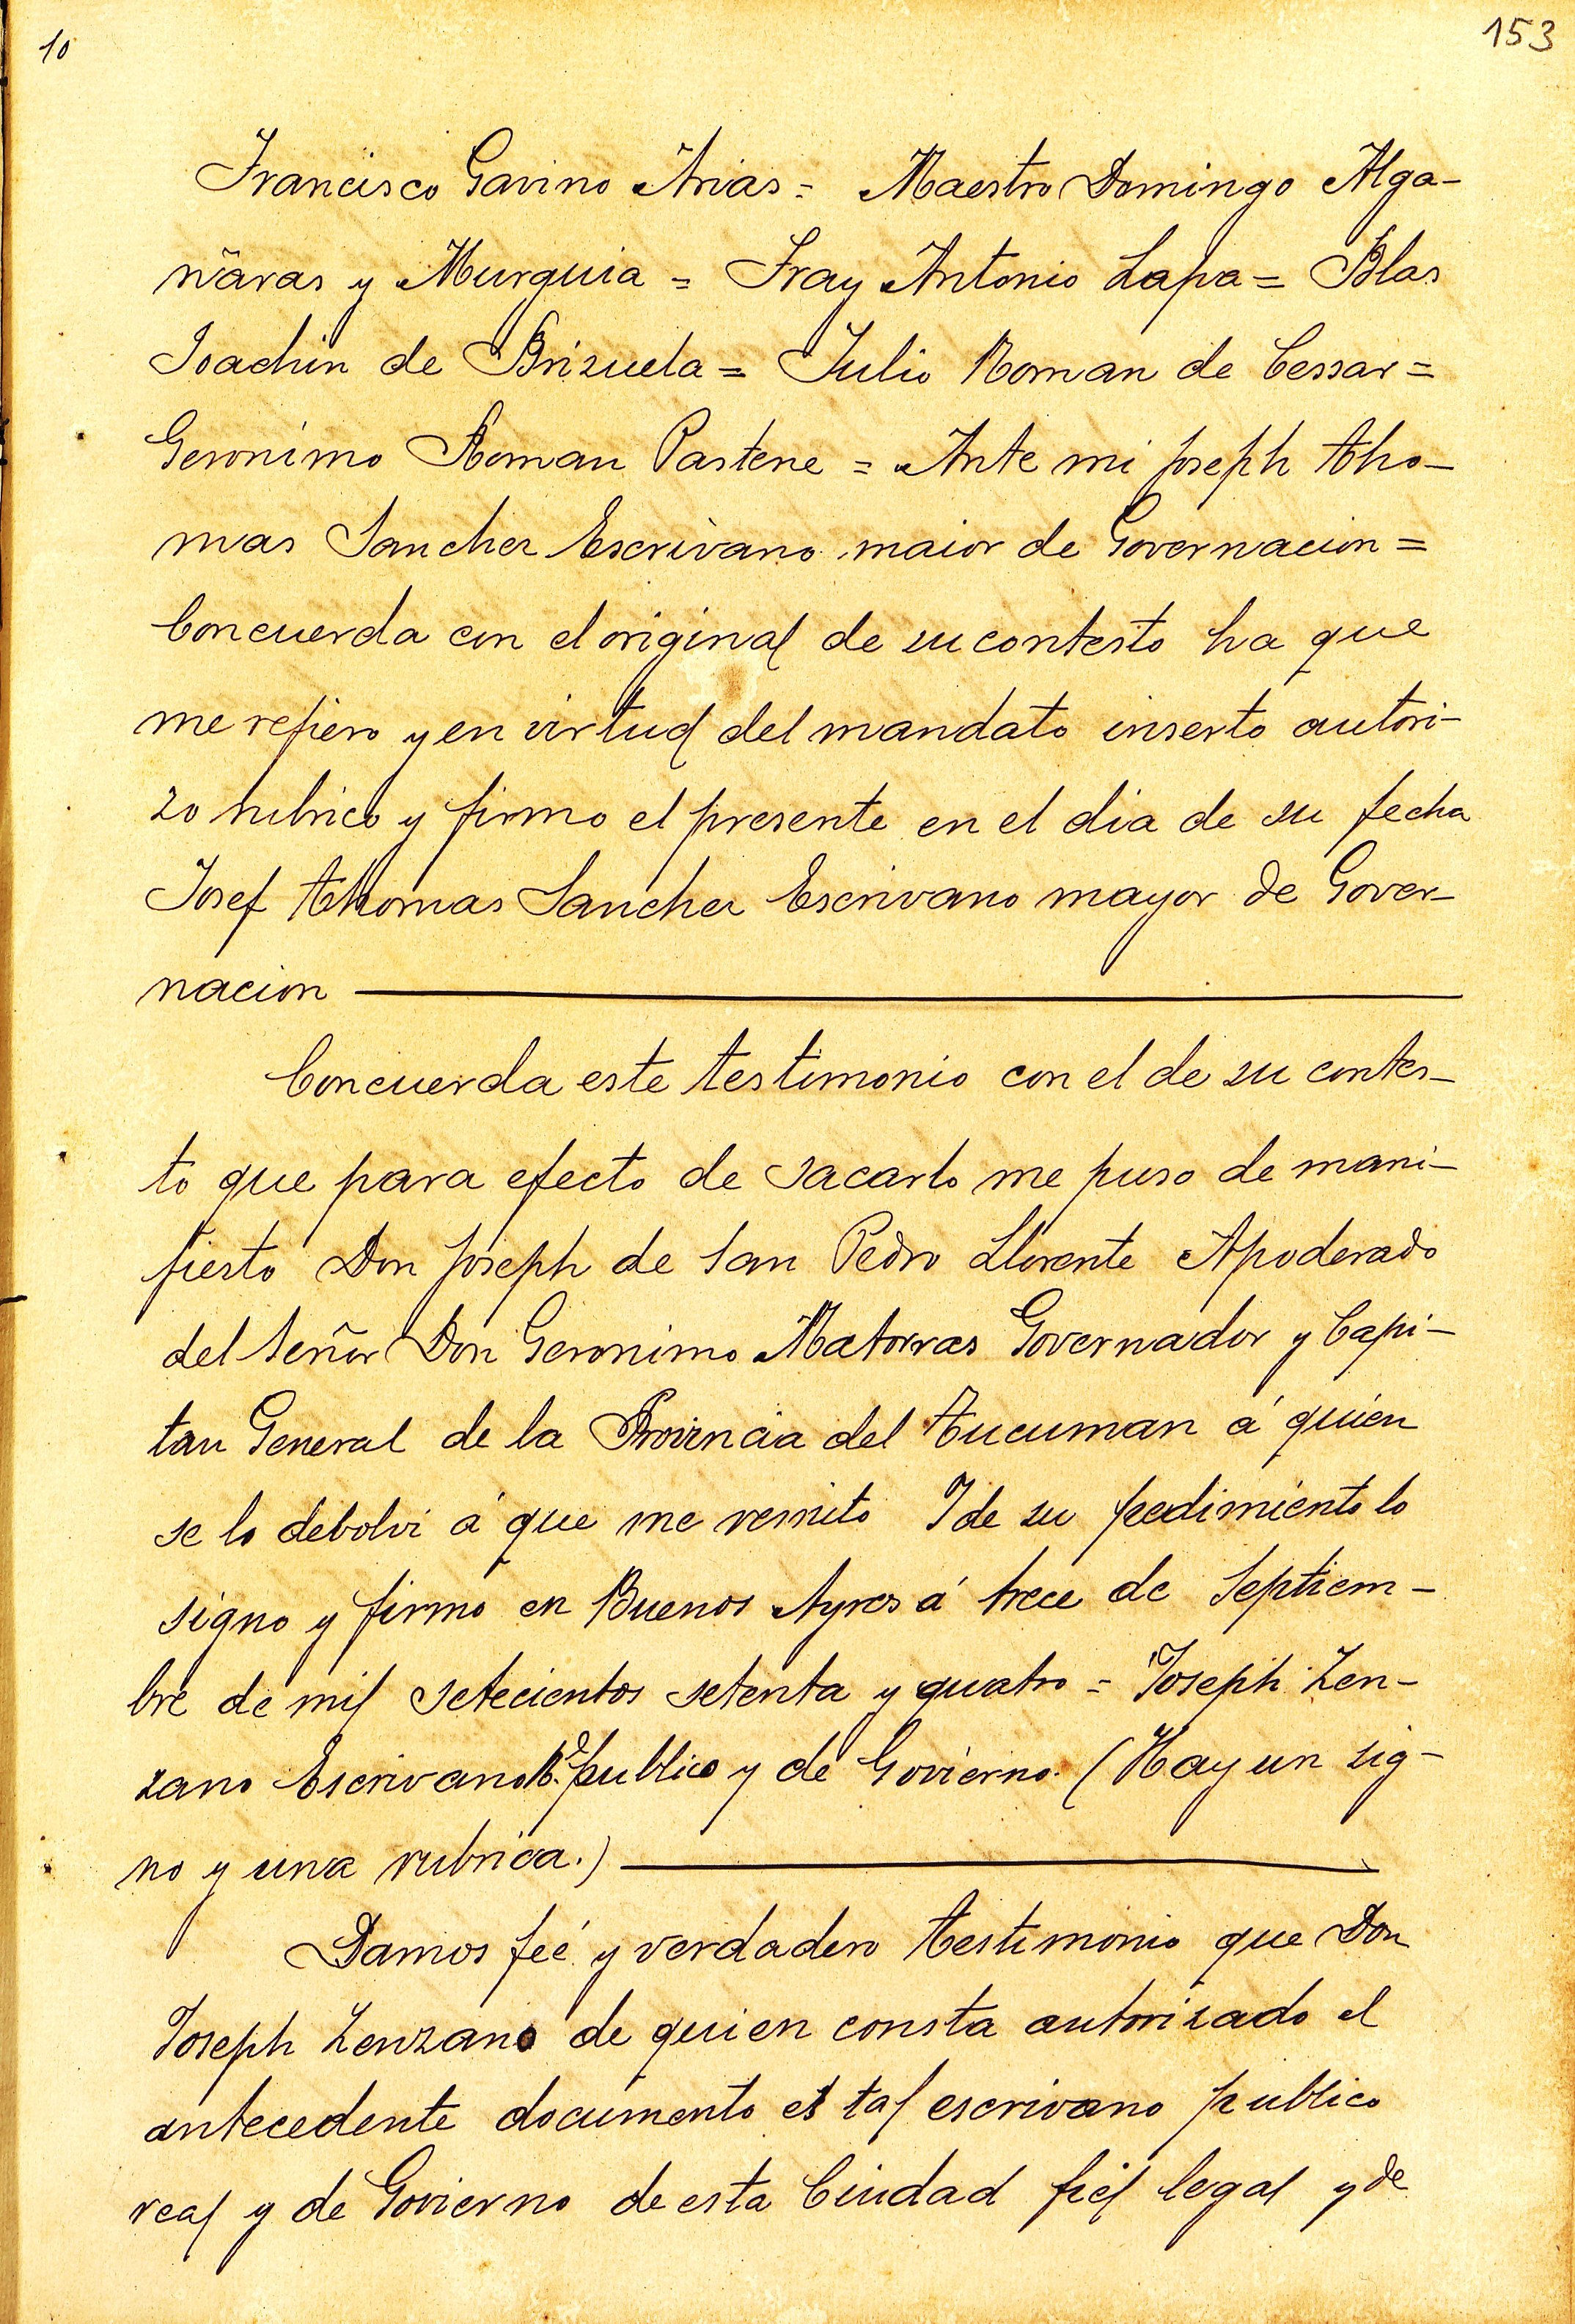 10
153
Francisco Gavino Arias = Maestro Domingo Alga-
ñaras y Murguia = Fray Antonio Lapa = Blas
Joachin de Brizuela = Julio Roman de Cessar =
Geronimo Roman Pastene = Ante mi Joseph Tho-
mas Sanchez Escrivano maior de Governacion =
Concuerda con el original de su contesto ha que
me refiero y en virtud del mandato inserto autori-
zo rubrico y firmo el presente en el dia de su fecha
Josef Thomas Sanchez Escrivano mayor de Gover-
nacion
Concuerda este testimonio con el de su contes-
to que para efecto de sacarlo me puso de mani-
fiesto Don Joseph de San Pedro Llorente Apoderado
del Señor Don Geronimo Matorras Governador y Capi-
tan General de la Provincia del Tucuman á quien
se lo debolvi á que me remito Y de su pedimiento lo
signo y firmo en Buenos Ayres á trece de Septiem-
bre de mil setecientos setenta y quatro = Joseph Zen-
zano Escrivano R.º publico y de Govierno. (Hay un sig-
no y una rubrica.)
Damos feé y verdadero testimonio que Don
Joseph Zenzano de quien consta autorizado el
antecedente documento es tal escrivano publico
real y de Govierno de esta Ciudad fiel legal y de